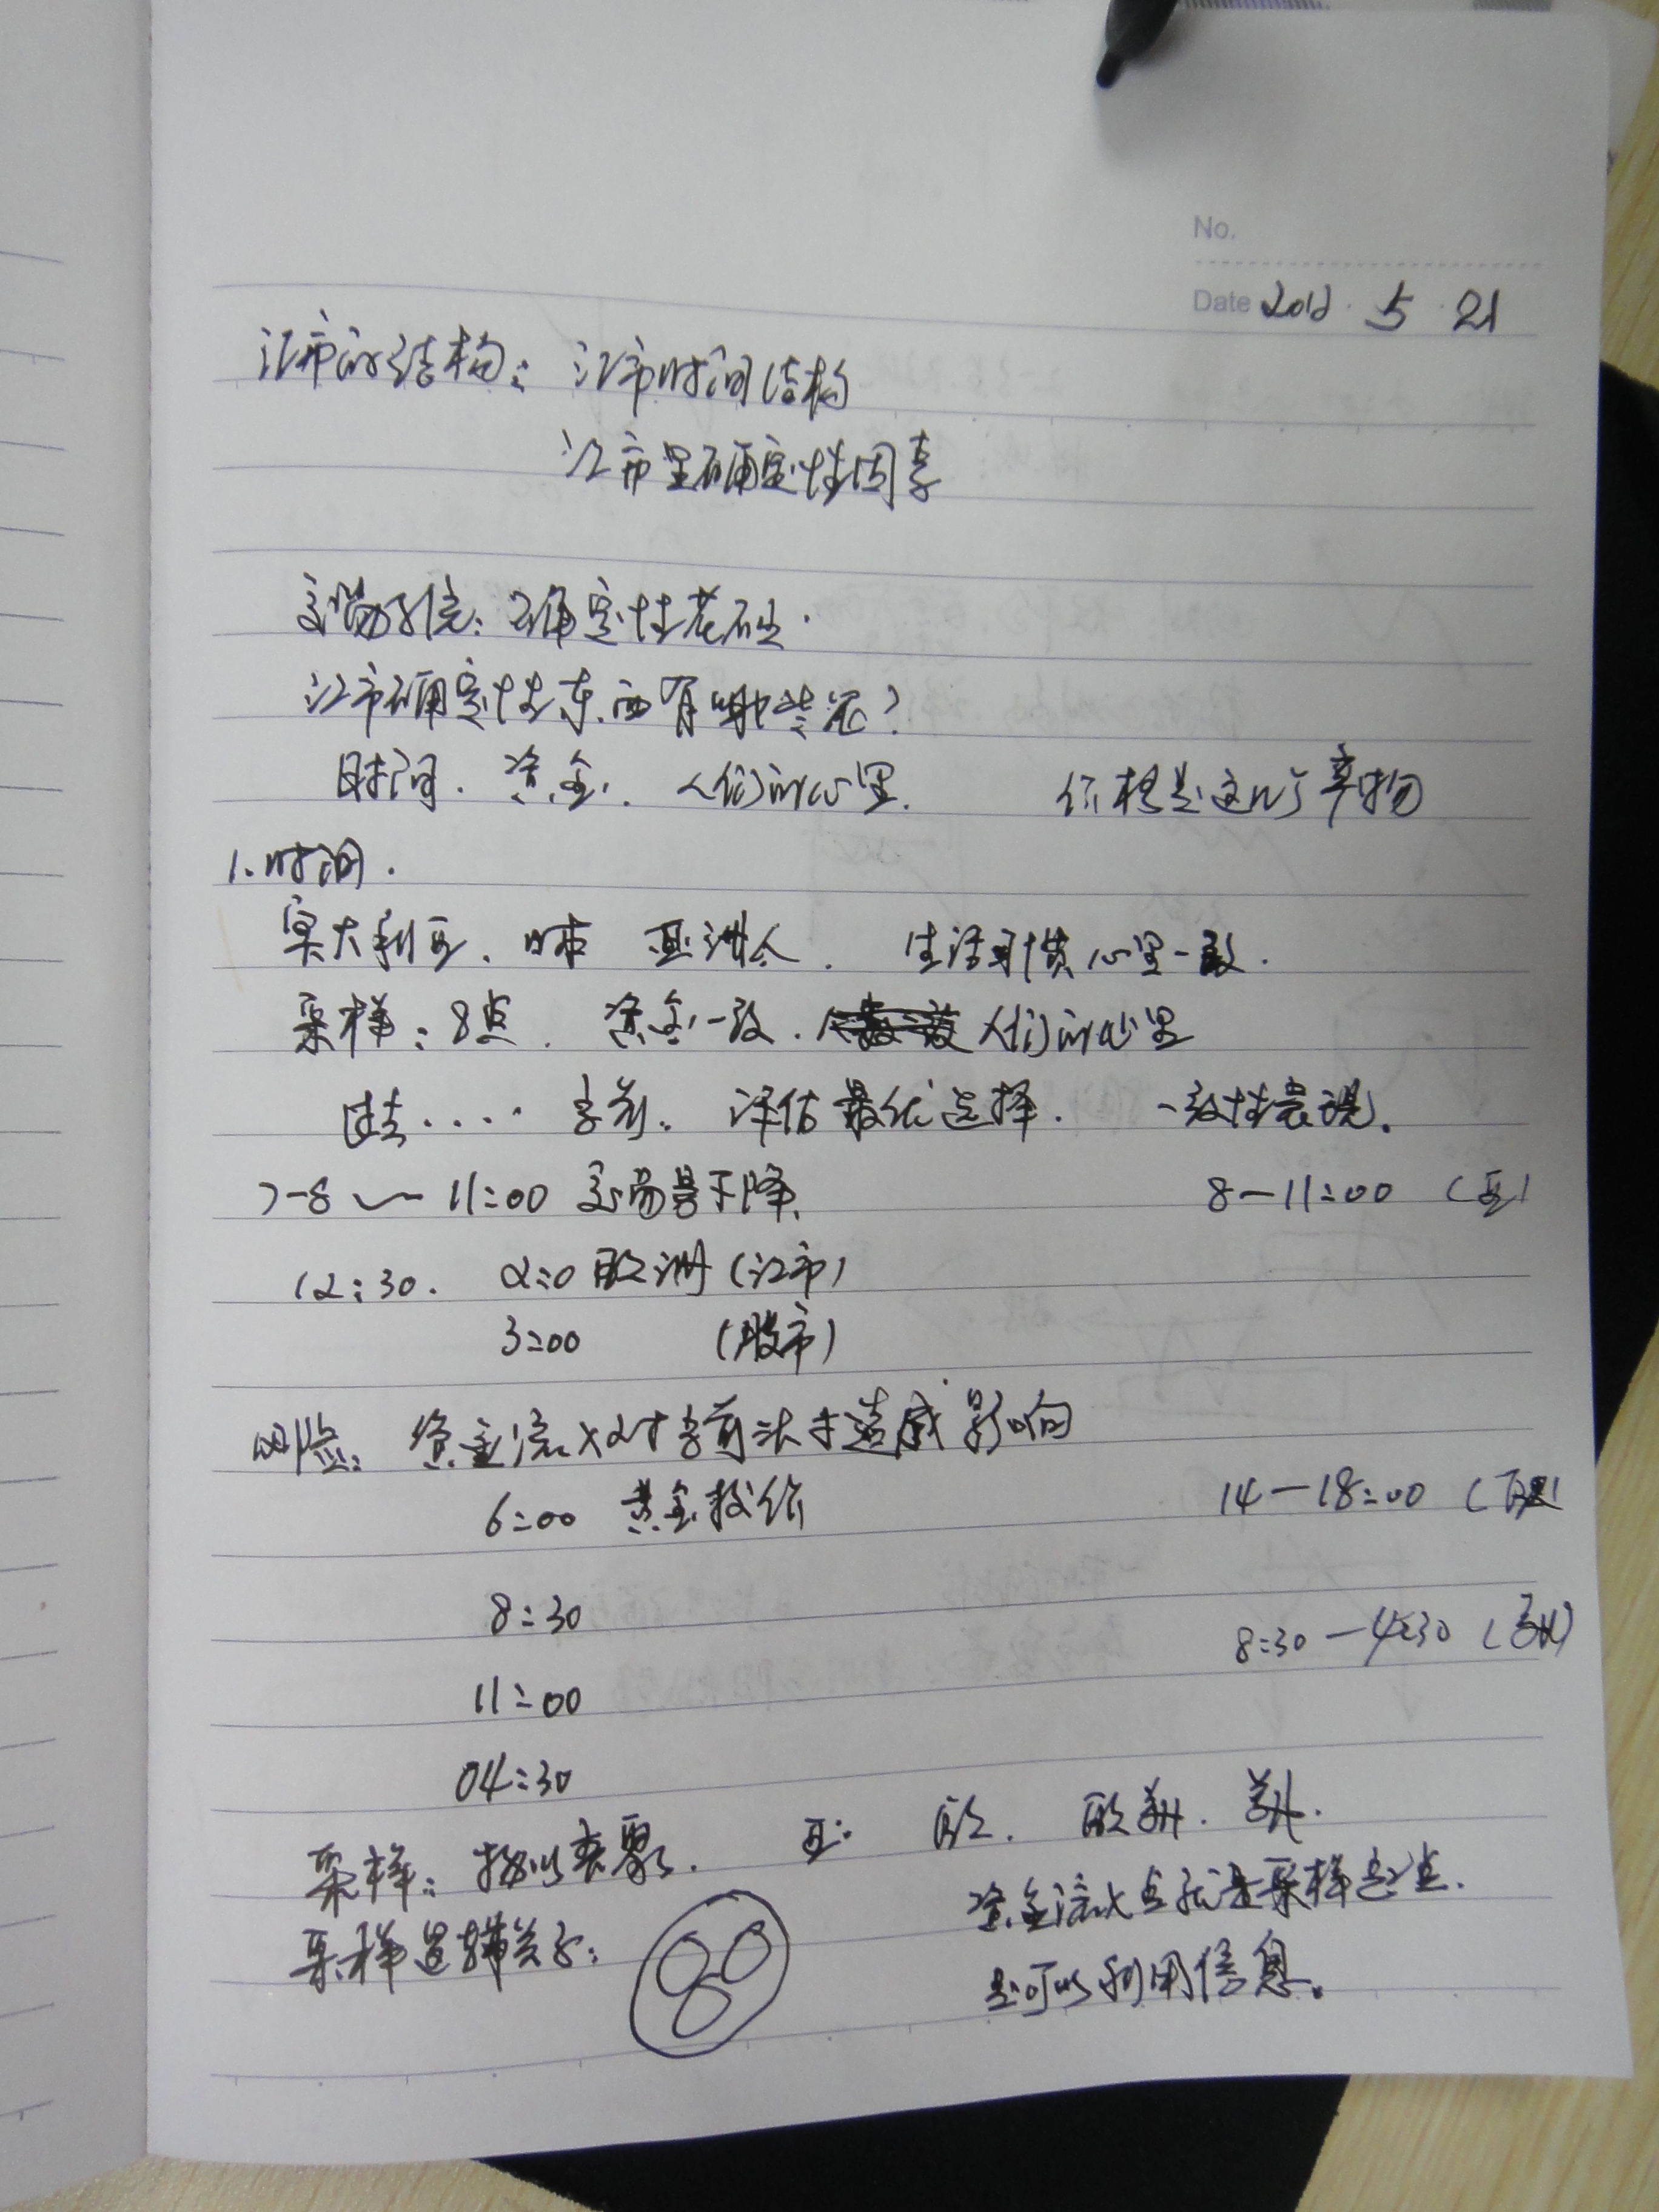 No.
Date 2012.5.21
汇市的结构：汇市时间结构
汇市里确定性因素
交易系统：确定性基础.
汇市确定性东西有哪些呢？
时间. 资金. 人们的心里. 价格是这的产物
1.时间.
澳大利亚、日本 亚洲人. 生活习惯心里一致.
采样：8点. 资金一致. 人们的心里
过去.... 当前. 评估最优选择. 一致性表现.
7-8 ～ 11:00 交易量下降. 8-11:00 (亚)
12:30. 2:0 欧洲 (汇市)
3:00 (股市)
风险: 资金流入对当前汇市造成影响
6:00 黄金报价 14-18:00 (欧)
8:30
8:30-4:30 (美)
11:00
04:30
采样：拟以表象. 亚. 欧. 欧美. 美.
采样逻辑关系: 资金流入点就是采样起点.
是可以利用信息.